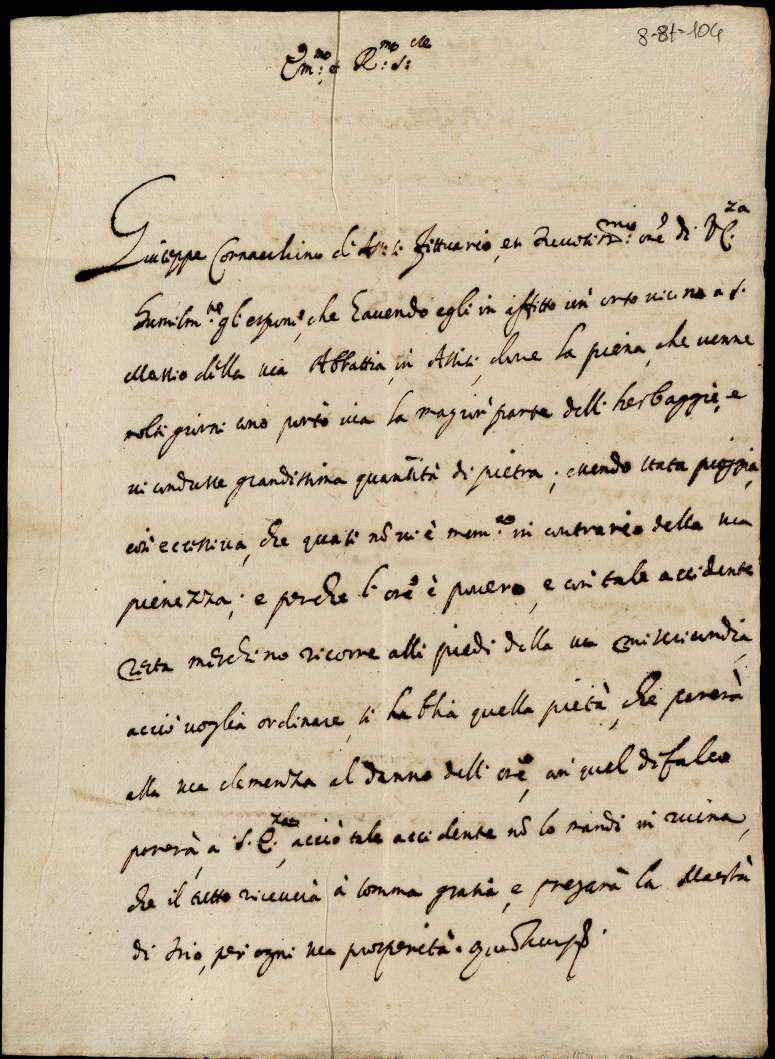 8-8t-104
Em:mo et R:mo S:re
Giuseppe Cornacchino d'Assisi fittuario, et devotiss:mo ore di V.E:za
humilm:te gli espone, che havendo egli in affitto un' orto vicino a S.
Massio della sua Abbattia, in Assisi, dove la piena, che venne
molti giorni sono portò via la magior parte delli herbaggie, e
vi condusse grandissima quantità di pietra; essendo stata pioggia
così eccessiva, che quasi nõ vi è mem:a in contrario della sua
pienezza; e perche l'ore è povero, e con tale accidente
resta meschino ricorre alli piedi della sua misericordia,
acciò voglia ordinare, si habbia quella pietà, che parerà
alla sua clemenza al danno dell'ore, con quel difalco
parerà a S.E:za, acciò tale accidente nõ lo mandi in ruina,
che il tutto riceverà à somma gratia, e pregarà la Maestà
di Dio, per ogni sua prosperità. Quam Deus